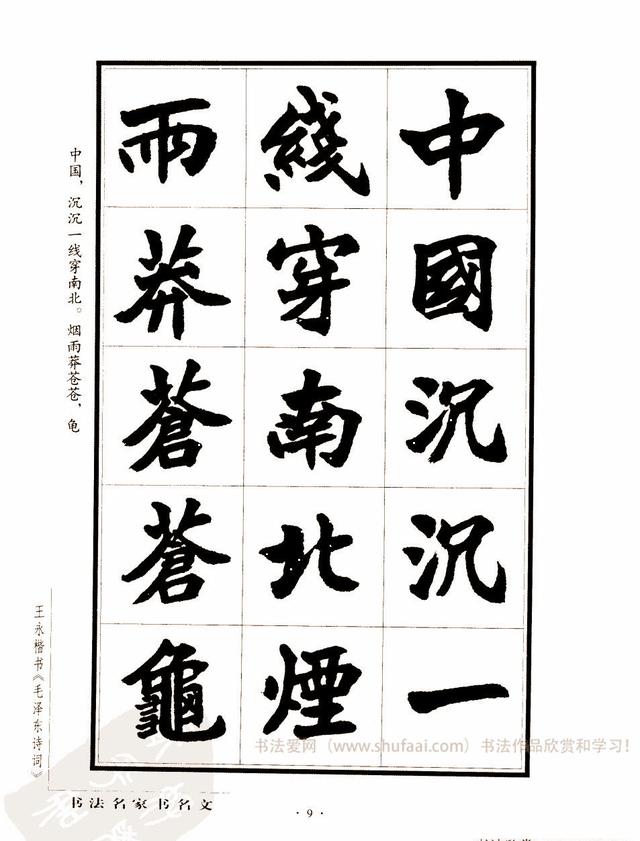 中國沉沉一
綫穿南北煙
雨莽蒼蒼龜
中国，沉沉一线穿南北。烟雨莽苍苍，龟
王永楷书《毛泽东诗词》
书法爱网（www.shufaai.com）书法作品欣赏和学习！
书法名家书名文
·9·